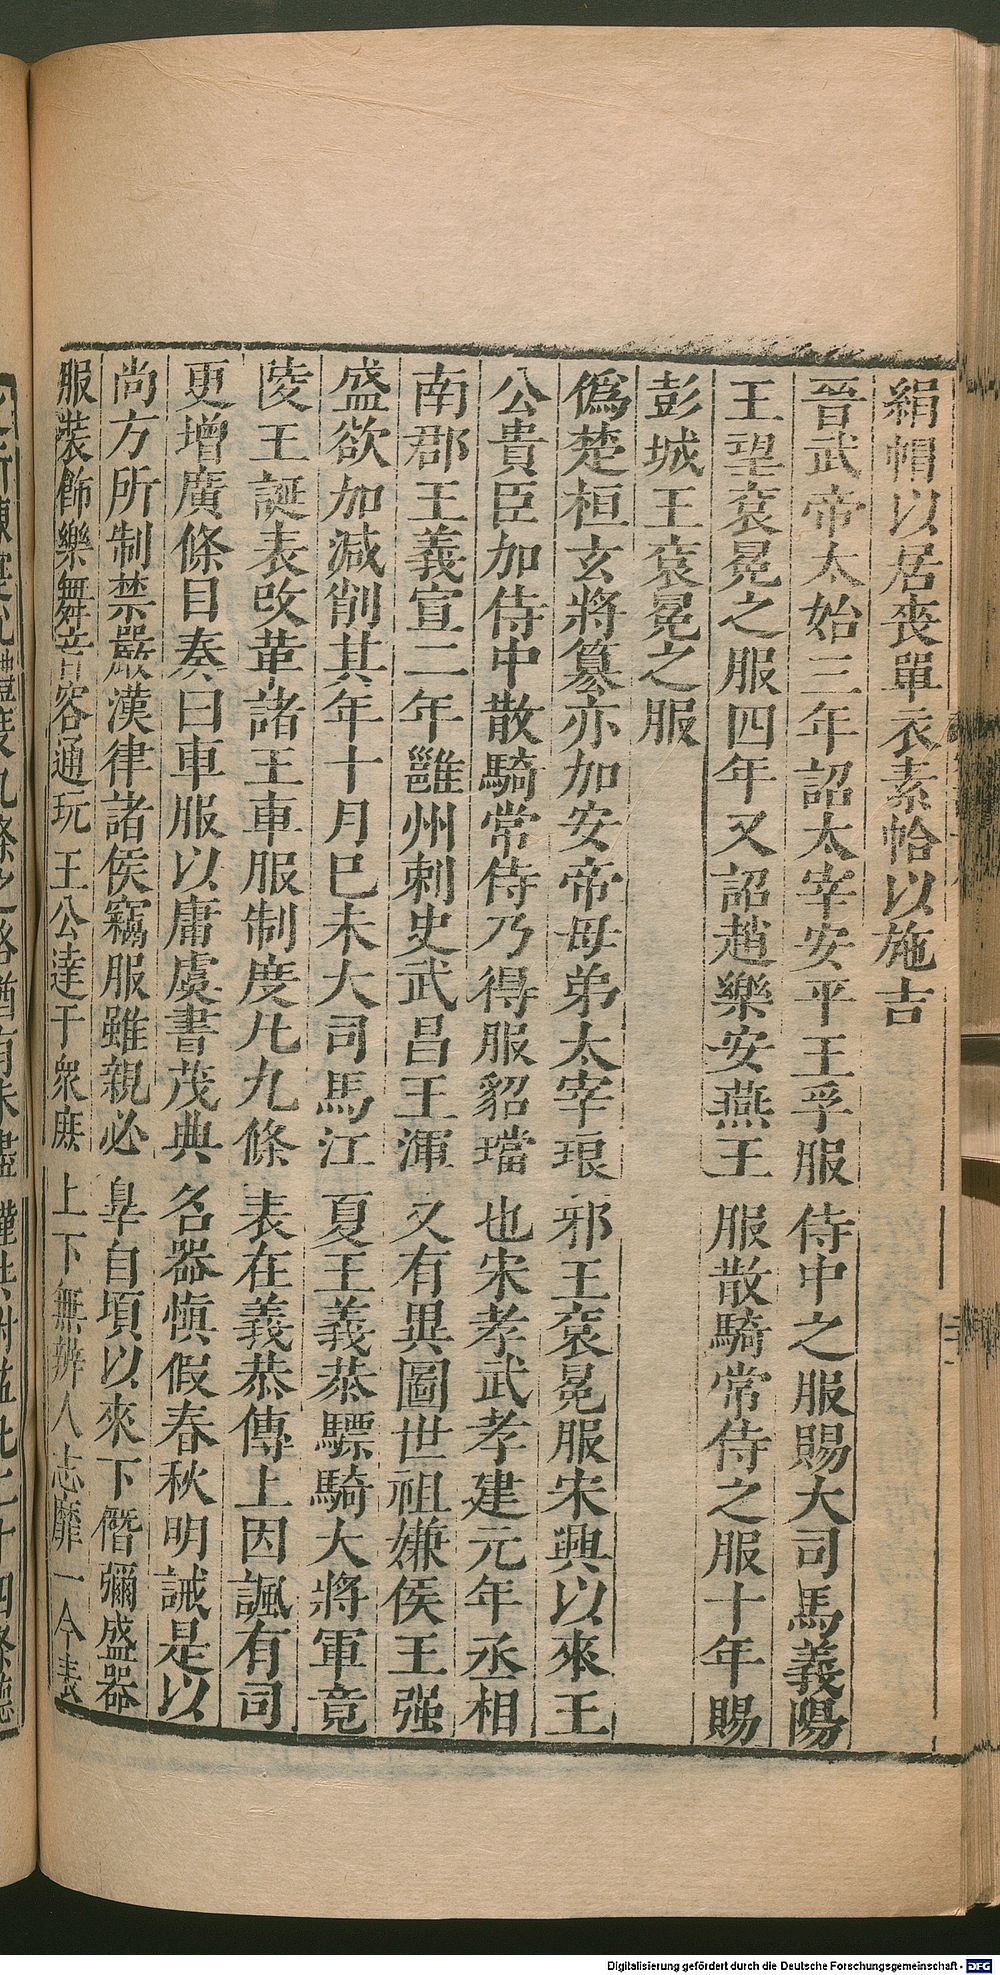 絹帽以居喪單衣素帢以施吉
晉武帝太始三年詔太宰安平王孚服侍中之服賜大司馬義陽
王望衮冕之服四年又詔趙樂安燕王服散騎常侍之服十年賜
彭城王衮冕之服
僞楚桓玄將篡亦加安帝母弟太宰琅邪王衮冕服宋興以來王
公貴臣加侍中散騎常侍乃得服貂璫也宋孝武孝建元年丞相
南郡王義宣二年雝州刺史武昌王渾又有異圖世祖嫌侯王强
盛欲加減削其年十月巳未大司馬江夏王義恭驃騎大將軍竟
陵王誕表改革諸王車服制度凡九條表在義恭傳上因諷有司
更增廣條目奏曰車服以庸虞書茂典名器慎假春秋明誡是以
尚方所制禁嚴漢律諸侯竊服雖親必辠自頃以來下僭彌盛器
服裝飾樂舞音容通玩王公達于衆庶上下無辨人志靡一今表
Digitalisierung gefördert durch die Deutsche Forschungsgemeinschaft - DFG